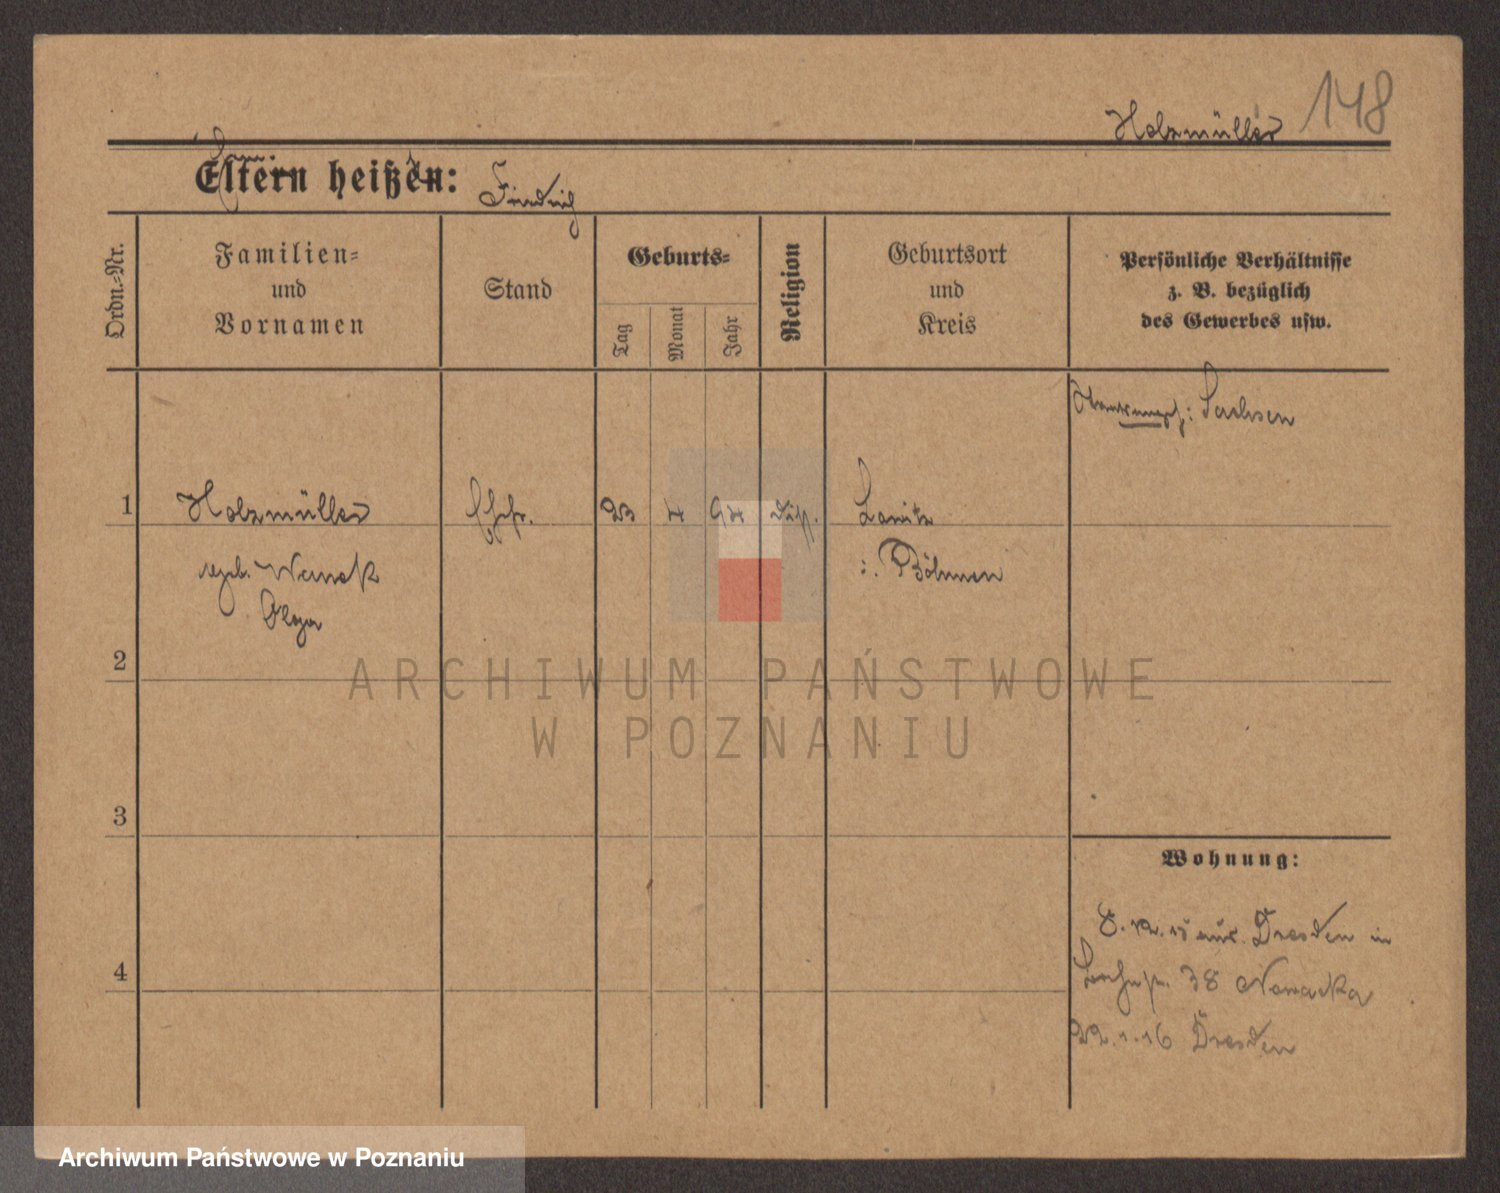 148
Holzmüller
Eltern heißen:
Friedrich
Ordn.-Nr.
Familien-
und
Vornamen
Stand
Geburts-
Tag
Monat
Jahr
Religion
Geburtsort
und
Kreis
Persönliche Verhältnisse
z. B. bezüglich
des Gewerbes usw.
Sachsen
1 Holzmüller Ehefr. 23 4 94
i. Böhmen
geb.
Olga
2
3
4
Wohnung:
8.12.15 aus Dresden in
38 Nowacka
22.1.16 Dresden
ARCHIWUM PAŃSTWOWE
W POZNANIU
Archiwum Państwowe w Poznaniu